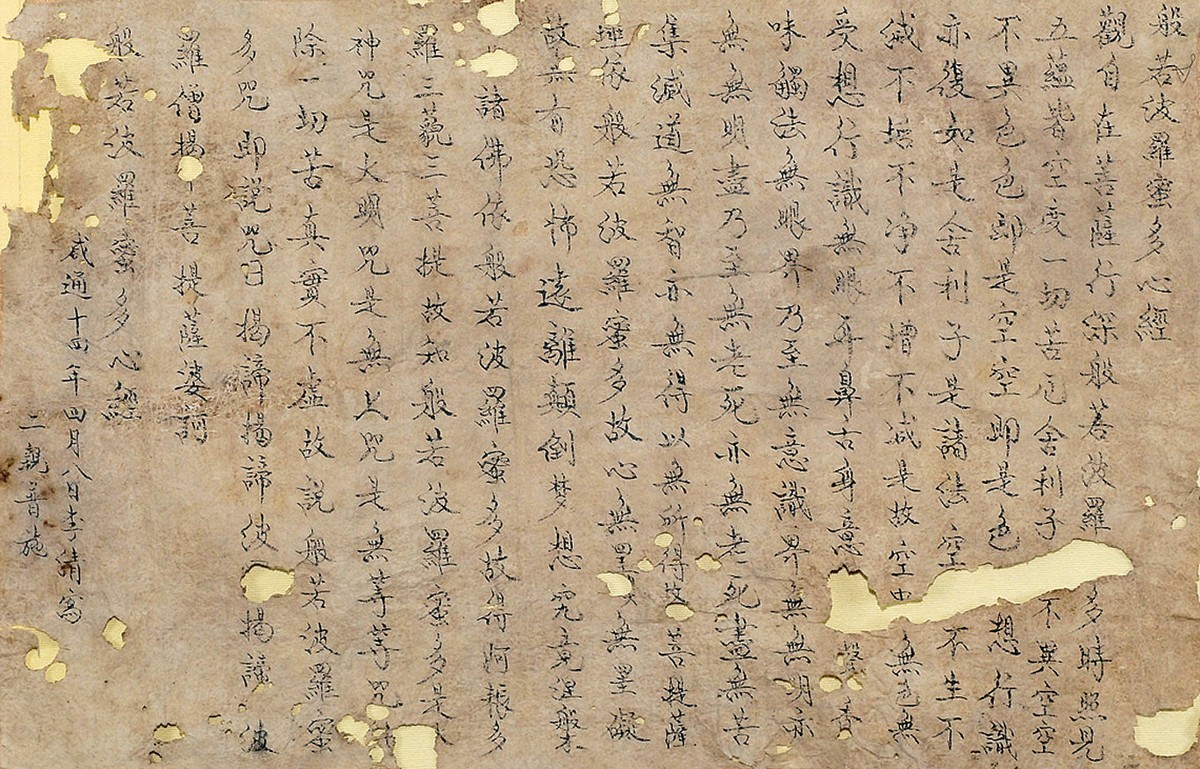 般若波羅蜜多心經
觀自在菩薩行深般若波羅多時照見
五蘊皆空度一切苦厄舍利子不異空空
不異色色即是空空即是色想行識
亦復如是舍利子是諸法空不生不
滅不垢不净不增不減是故空中無色無
受想行識無眼耳鼻舌身意聲香
味觸法無眼界乃至無意識界無無明亦
無無明盡乃至無老死亦無老死盡無苦
集滅道無智亦無得以無所得故菩提薩
埵依般若波羅蜜多故心無罣無罣礙
故無有恐怖遠離顛倒梦想究竟涅槃
諸佛依般若波羅蜜多故得阿耨多
羅三藐三菩提故知般若波羅蜜多是大
神咒是大明咒是無上咒是無等等咒能
除一切苦真實不虛故說般若波羅蜜
多咒即說咒曰揭諦揭諦波揭諦波
羅僧揭菩提薩婆訶
般若波羅蜜多心經
咸通十四年四月八日李清寫
二親普施